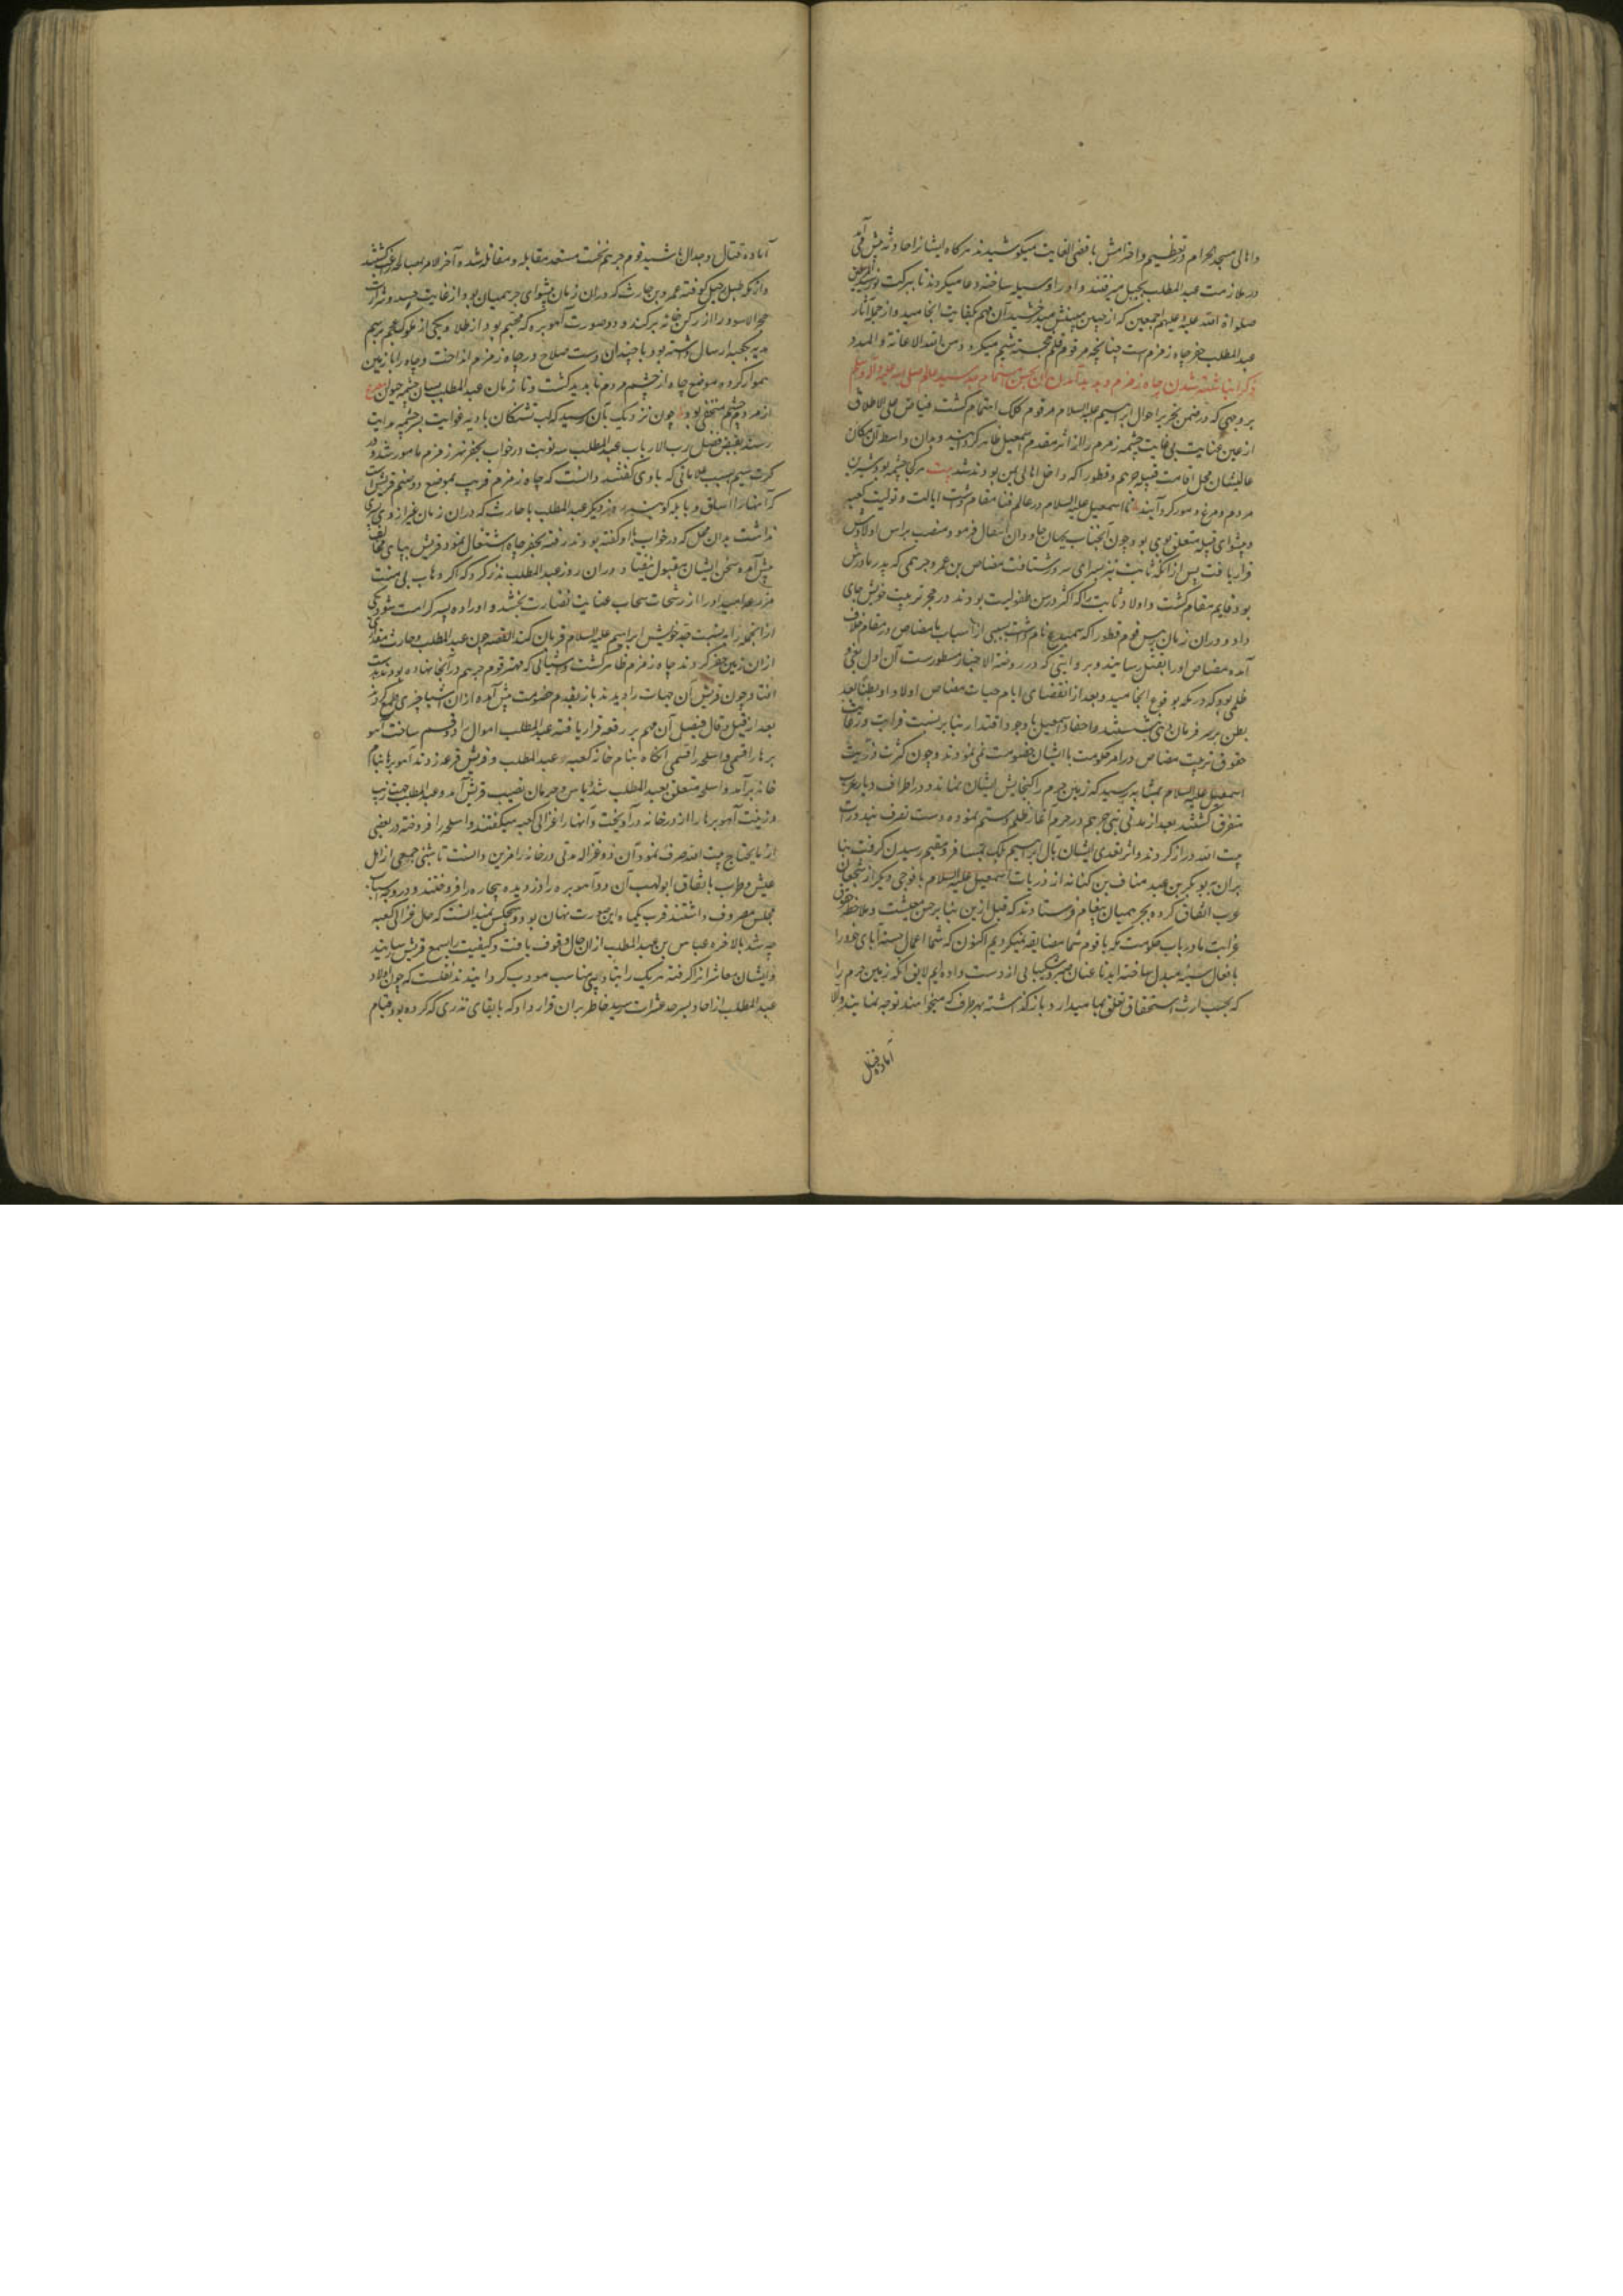 واهالی مسجد الحرام در تعظیم و احترامش باقصی الغایت میکوشیدند هرکاه ایشانرا حادثهٔ پیش می آمد
در ملازمت عبدالمطلب بجبل میرفتند و او را وسیله ساخته دعا میکردند تا ببرکت نور
صلواة الله علیه و علیهم اجمعین که از جبین مبینش میدرخشید آن مهم بکفایت انجامید و از جمله آثار
عبدالمطلب حفر چاه زمزم است چنانچه مرقوم قلم خجسته شیم میکردد و من الله الاعانة و المدد
ذکر انباشته شدن چاه زمزم و پدید آمدن آن بحسن اهتمام جد سید عالم صلی الله علیه و آله و سلم
بر وجهی که در ضمن تحریر احوال ابراهیم علیه السلام مرقوم کلک اهتمام کشت فیاض علی الاطلاق
از عین عنایت بی غایت چشمه زمزم را از اثر مقدم اسمعیل ظاهر کردانید و بدان واسطه آن مکان
عالیشان محل اقامت قبیله جرهم و قطورا که داخل اهالی یمن بودند شد بیت هرکجا چشمه بود شیرین
مردم و مرغ و مور کرد آیند تا اسمعیل علیه السلام در عالم فنا مقام داشت ایالت و تولیت کعبه
و پیشوای قبیله متعلق بوی بود و چون آنجناب بجهان جاودان انتقال فرمود منصب براس اولادش
قرار یافت پس از آنکه ثابت نیز بسرای سرور شتافت مضاض بن عمرو جرهمی که پدر مادرش
بود قایم مقام کشت و اولاد ثابت را که اکثر در سن طفولیت بودند در حجر تربیت خویش جای
داد و در آن زمان رئیس قوم قطورا که سمیدع نام داشت بسببی از اسباب با مضاض در مقام خلاف
آمده مضاض او را بقتل رسانید و بروایتی که در روضة الاحباب مسطورست آن اول بغی و
ظلمی بود که در مکه بوقوع انجامید و بعد از انقضای ایام حیات مضاض اولاد او بطنا بعد
بطن بر سر فرمان دهی نشستند و احفاد اسمعیل با وجود اقتدار بنابر نسبت قرابت و رعایت
حقوق تربیت مضاض در امر حکومت با ایشان خصومت نمی نمودند و چون کثرت ذریت
اسمعیل علیه السلام بمثابه رسید که زمین حرم را کنجایش ایشان نماند و در اطراف دیار عرب
متفرق کشتند بعد از مدتی بنی جرهم در حرم آغاز ظلم و ستم نموده دست تصرف بنذورات
بیت الله دراز کردند و اثر تعدی ایشان بآل ابراهیم بلک بمسافر و مقیم رسیدن کرفت بنا
بران بو بکر بن عبد مناف بن کنانه از ذریات اسمعیل علیه السلام با فوجی دیکر از شجعان
عرب اتفاق کرده بجرهمیان پیغام فرستادند که قبل ازین بنابر حسن معیشت و ملاحظه حقوق
قرابت ما در باب حکومت مکه با قوم شما مضایقه نمیکردیم اکنون که شما اعمال حسنه آبای خود را
بافعال سیئه مبدل ساخته اید ما عنان صبر و شکیبائی از دست داده ایم لایق آنکه زمین حرم را
که بحسب ارث و استحقاق تعلق بما میدارد باز کذاشته بهر طرف که میخواهند توجه نمایند والا
آماده قتال
آماده قتال و جدال باشید قوم جرهم نخست مستعد مقابله و مقاتله شده آخر الامر بمصالحه راضی کشتند
و از مکه طبل رحیل کوفته عمرو بن حارث که در آن زمان پیشوای جرهمیان بود از غایت حسد و شرارت
حجر الاسود را از رکن خانه برکند و دو صورت آهو بره که مجسم بود از طلا و یکی از ملوک عجم برسم
هدیه بکعبه ارسال داشته بود با چندان دست سلاح در چاه زمزم انداخت و چاه را با زمین
هموار کرده موضع چاه از چشم مردم ناپدید کشت و تا زمان عبدالمطلب بسان چشمه حیوان مصرع
از مردم چشم مختفی بود چون نزدیک بآن رسید که لب تشنکان بادیه غوایت بسرچشمه هدایت
رسند بفیض فضل رب الارباب عبدالمطلب سه نوبت در خواب بحفر بئر زمزم مامور شد و در
کرت سیم بسبب علاماتی که باوی کفتند دانست که چاه زمزم قریب بموضع دو صنم قریش است
که آنها را اساف و نایله کویند روز دیکر عبدالمطلب با حارث که در آن زمان غیر از وی پسری
نداشت بدان محل که در خواب با او کفته بودند رفته بحفر چاه اشتغال نمود و قریش بپای مخالفت
پیش آمده سخن ایشان مقبول نیفتاد و در آن روز عبدالمطلب نذر کرد که اکر وهاب بی منت
مزرعه امید او را از رشحات سحاب عنایت نضارت بخشد و او را ده پسر کرامت شود یکی
از آنجمله را به نسبت جد خویش ابراهیم علیه السلام قربان کند القصه چون عبدالمطلب و حارث مقداری
از آن زمین حفر کردند چاه زمزم ظاهر کشت و اشیائی که مهتر قوم جرهم در آنجا نهاده بود بدست
افتاد و چون قریش آن جهات را دیدند باز بقدم خصومت پیش آمده از آن اشیا چیزی طمع کردند
بعد از قیل و قال فیصل آن مهم بر قرعه قرار یافته عبدالمطلب اموال را دو قسم ساخت آهو
برها را قسمی و اسلحه را قسمی آنکاه بنام خانه کعبه و عبدالمطلب و قریش قرعه زدند آهو برها بنام
خانه برآمد و اسلحه متعلق بعبدالمطلب شد و یاس و حرمان نصیب قریش آمد و عبدالمطلب جهت زیب
و زینت آهو برها را از در خانه درآویخت و آنها را غزالی کعبه میکفتند و اسلحه را فروخته در بعضی
از مایحتاج بیت الله صرف نمود آن دو غزاله مدتی در خانه را مزین داشت تا شبی جمعی از اهل
عیش و طرب باتفاق ابولهب آن دو آهو بره را دزدیده بیچاره را فروختند و در وجه اسباب
مجلس مصروف داشتند قرب یکماه این صورت نهان بود و هیچکس نمیدانست که حال غزالی کعبه
چه شد بالاخره عباس بن عبدالمطلب از آن حال وقوف یافت و کیفیت را بسمع قریش رسانید
و ایشان خاشرانرا کرفته هریک را بتادیبی مناسب مودب کردانیدند نقلست که چون اولاد
عبدالمطلب از آحاد بسرحد عشرات رسید خاطر بران قرار داد که بایفای نذری که کرده بود قیام